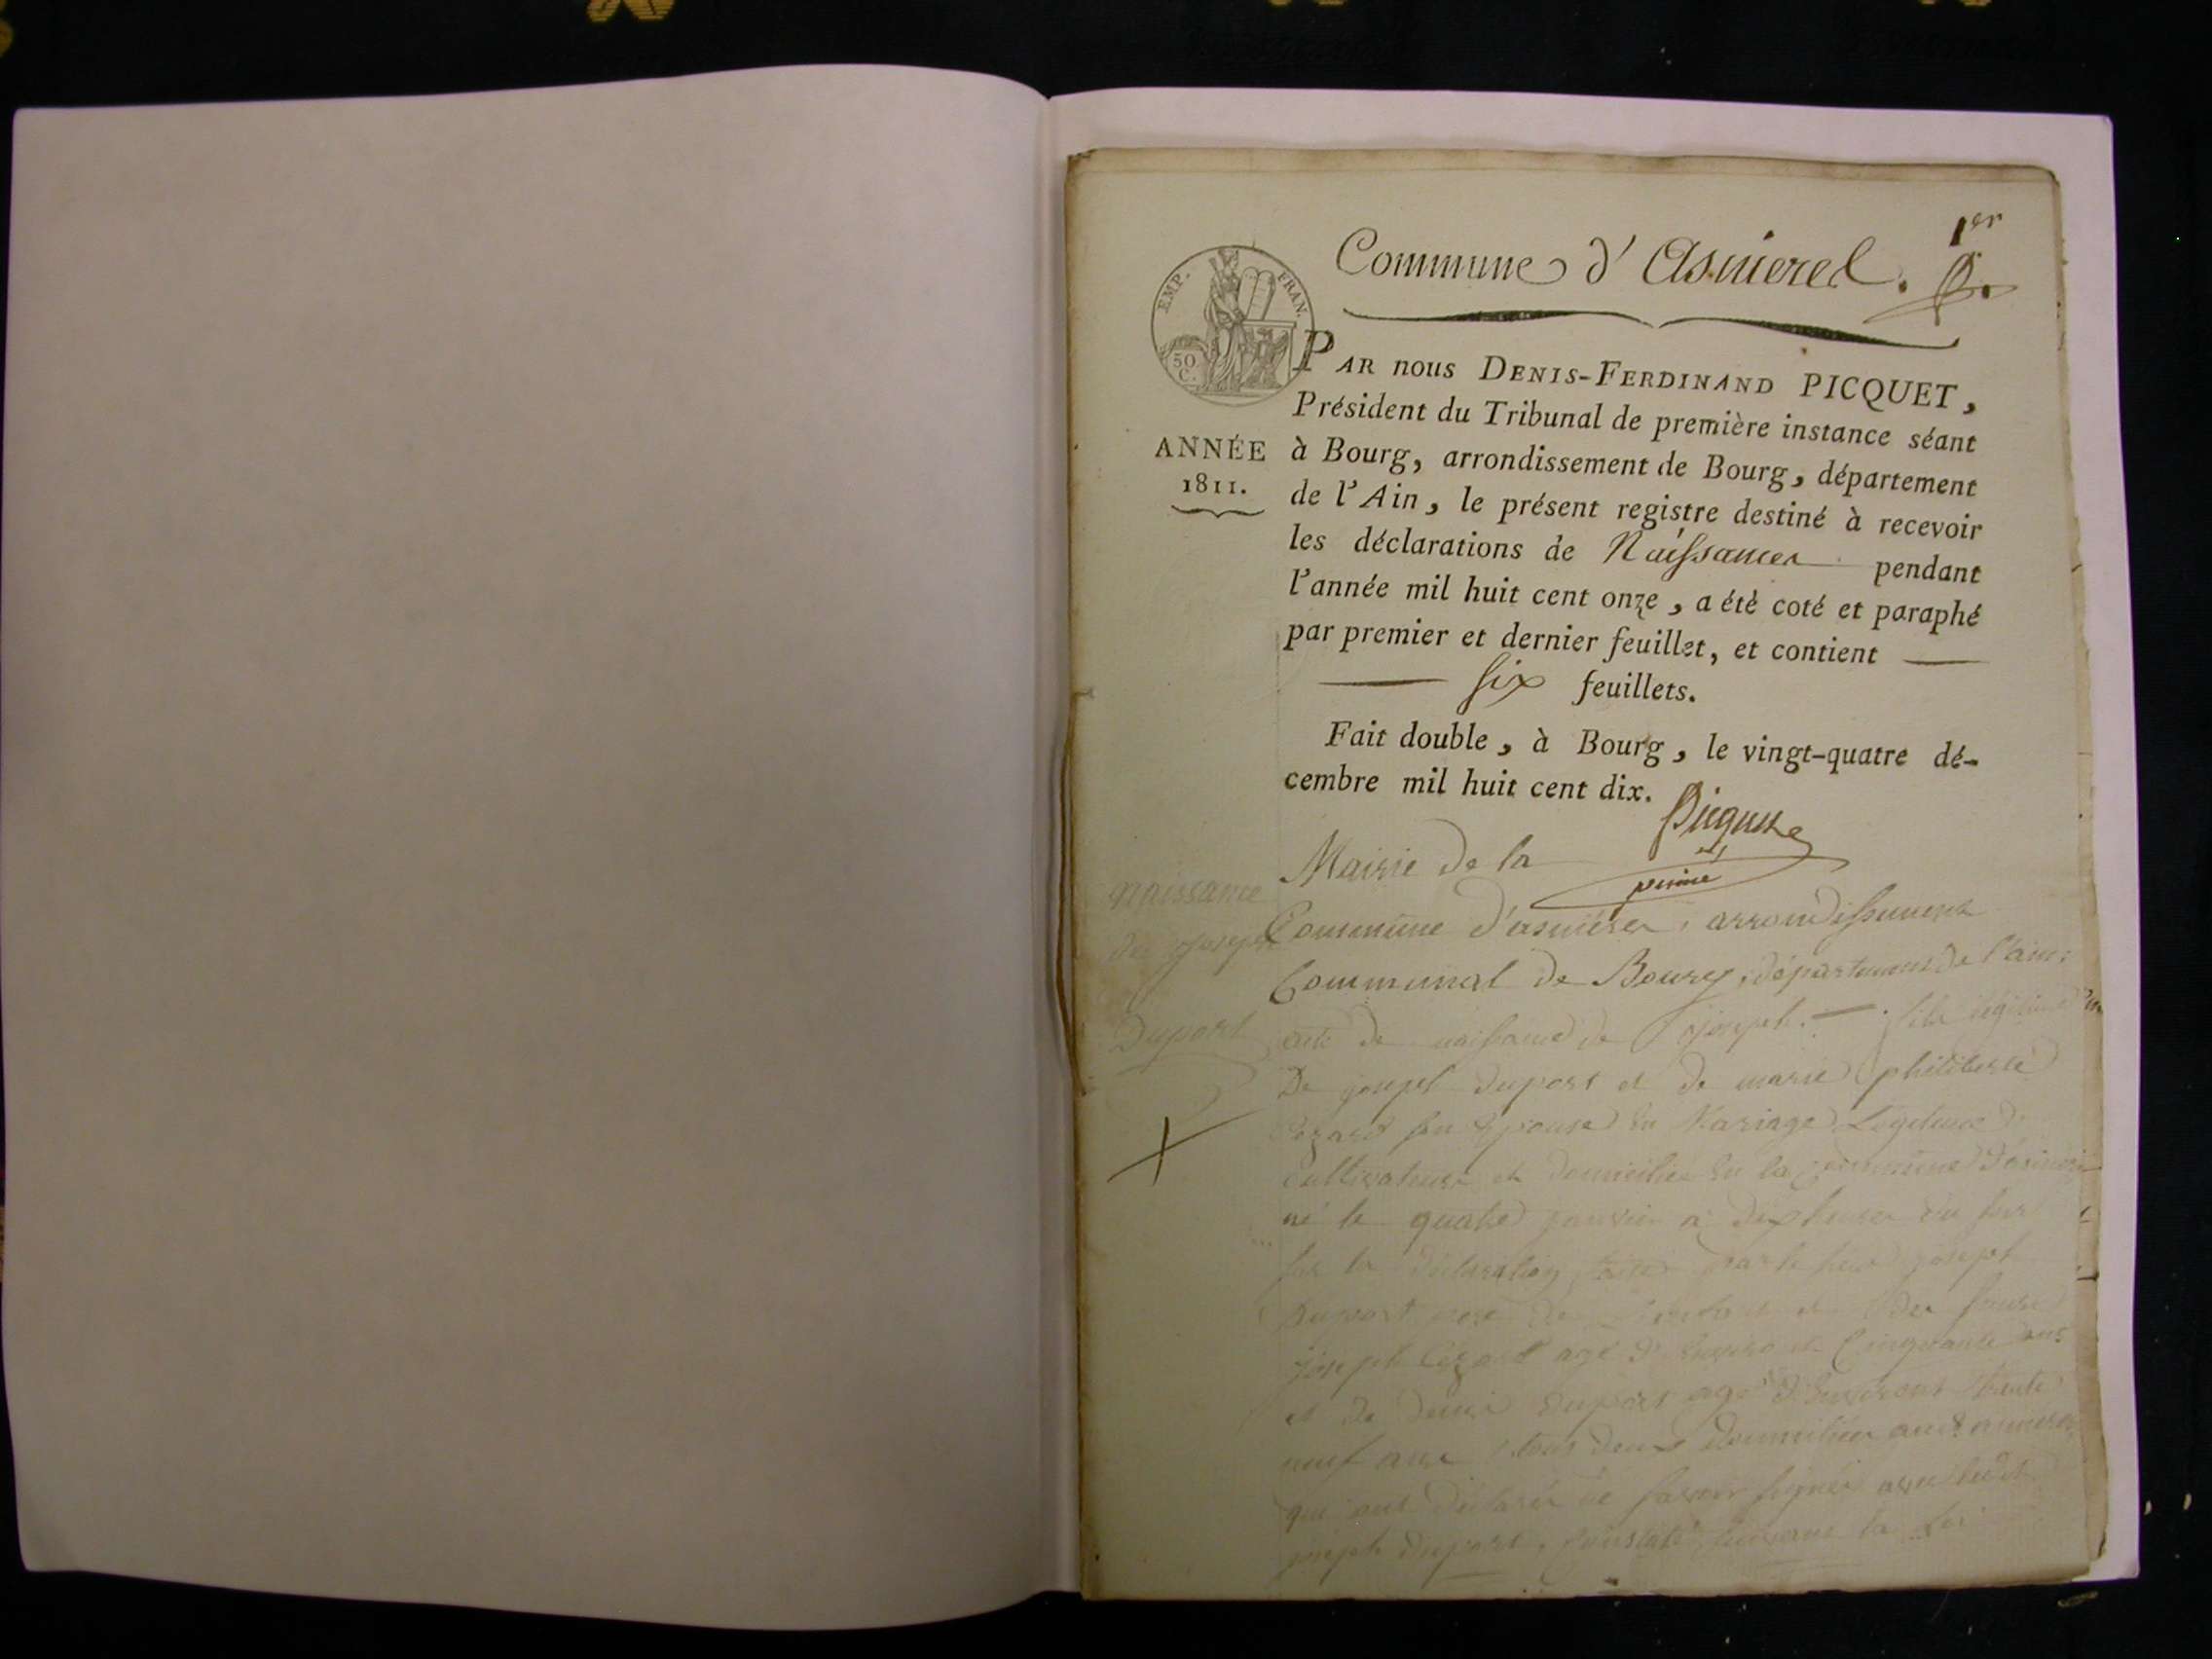 1er
Commune d'Asnieres.
EMP. FRAN.
50
C.
PAR nous DENIS-FERDINAND PICQUET,
Président du Tribunal de première instance séant
ANNÉE
1811.
à Bourg, arrondissement de Bourg, département
de l'Ain, le présent registre destiné à recevoir
les déclarations de Naissances pendant
l'année mil huit cent onze, a été coté et paraphé
par premier et dernier feuillet, et contient
six feuillets.
Fait double, à Bourg, le vingt-quatre dé-
cembre mil huit cent dix.
Picquet
Naissance
de joseph
Duport
Mairie de la
Commune d'asnieres, arrondissement
Communal de Bourg, département de l'ain
acte de naissance de joseph fils légitime
De joseph duport et de marie philiberte
son Epouse en Mariage Légitime
cultivateurs et domicilies en la commune
né le quatre janvier a dix heures du soir
sur la déclaration faite par le sieur joseph
duport pere de
joseph agé d'environ Cinquante ans
et de denis duport agé d'environ trente
neuf ans tous deux domiciliés
qui ont déclarés ne savoir signer avec ledit
joseph duport, Constaté suivant la Loi